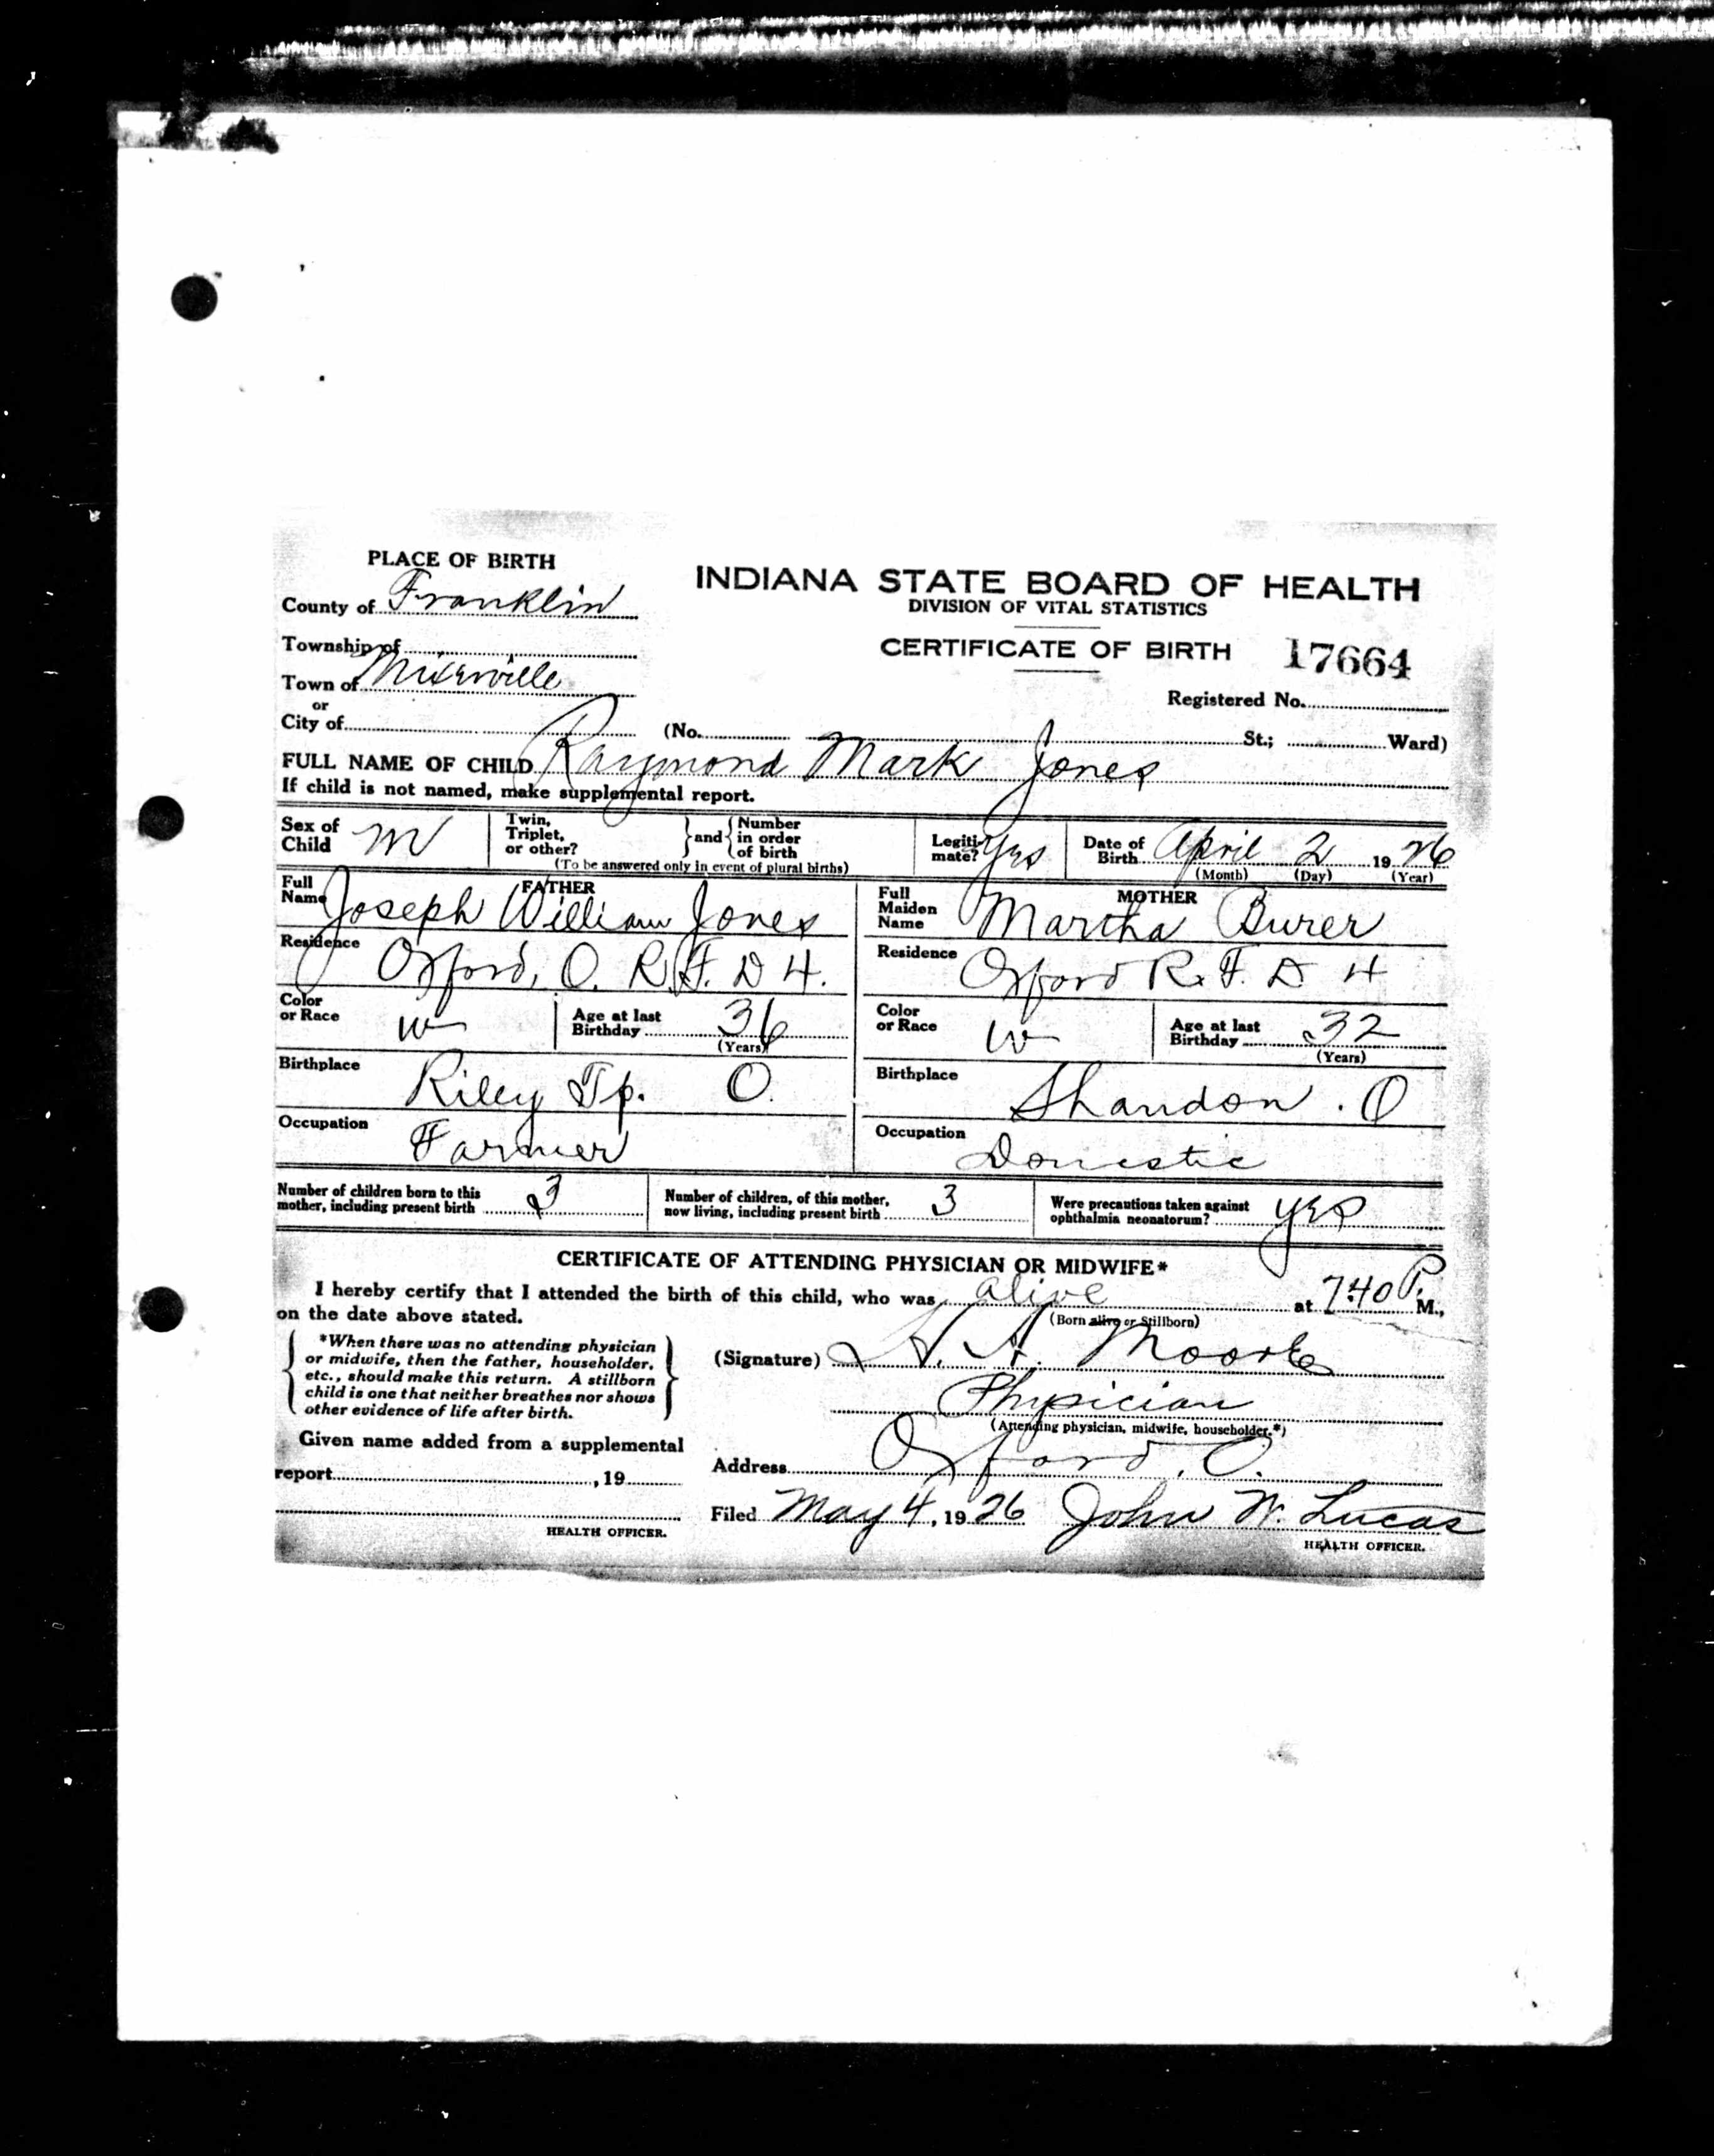 PLACE OF BIRTH
County of Franklin
Township of
Town of Mixerville
or
City of
INDIANA STATE BOARD OF HEALTH
DIVISION OF VITAL STATISTICS
CERTIFICATE OF BIRTH 17664
Registered No.
(No. St.; Ward)
FULL NAME OF CHILD Raymond Mark Jones
If child is not named, make supplemental report.
Sex of Child M
Twin, Triplet, or other? and Number in order of birth
(To be answered only in event of plural births)
Legitimate? Yes
Date of Birth April 2 1926
(Month) (Day) (Year)
FATHER
Full Name Joseph William Jones
Residence Oxford, O. R.F.D 4.
Color or Race W
Age at last Birthday 36
(Years)
Birthplace Riley Tp. O.
Occupation Farmer
MOTHER
Full Maiden Name Martha Burer
Residence Oxford R.F.D 4
Color or Race W
Age at last Birthday 32
(Years)
Birthplace Shandon. O
Occupation Domestic
Number of children born to this mother, including present birth 3
Number of children, of this mother, now living, including present birth 3
Were precautions taken against ophthalmia neonatorum? yes
CERTIFICATE OF ATTENDING PHYSICIAN OR MIDWIFE*
I hereby certify that I attended the birth of this child, who was alive at 7:40 P. M.,
(Born alive or Stillborn)
on the date above stated.
*When there was no attending physician
or midwife, then the father, householder,
etc., should make this return. A stillborn
child is one that neither breathes nor shows
other evidence of life after birth.
(Signature) H. Moore
Physician
(Attending physician, midwife, householder.*)
Given name added from a supplemental
report , 19
HEALTH OFFICER.
Address Oxford, O.
Filed May 4, 1926 John W. Lucas
HEALTH OFFICER.